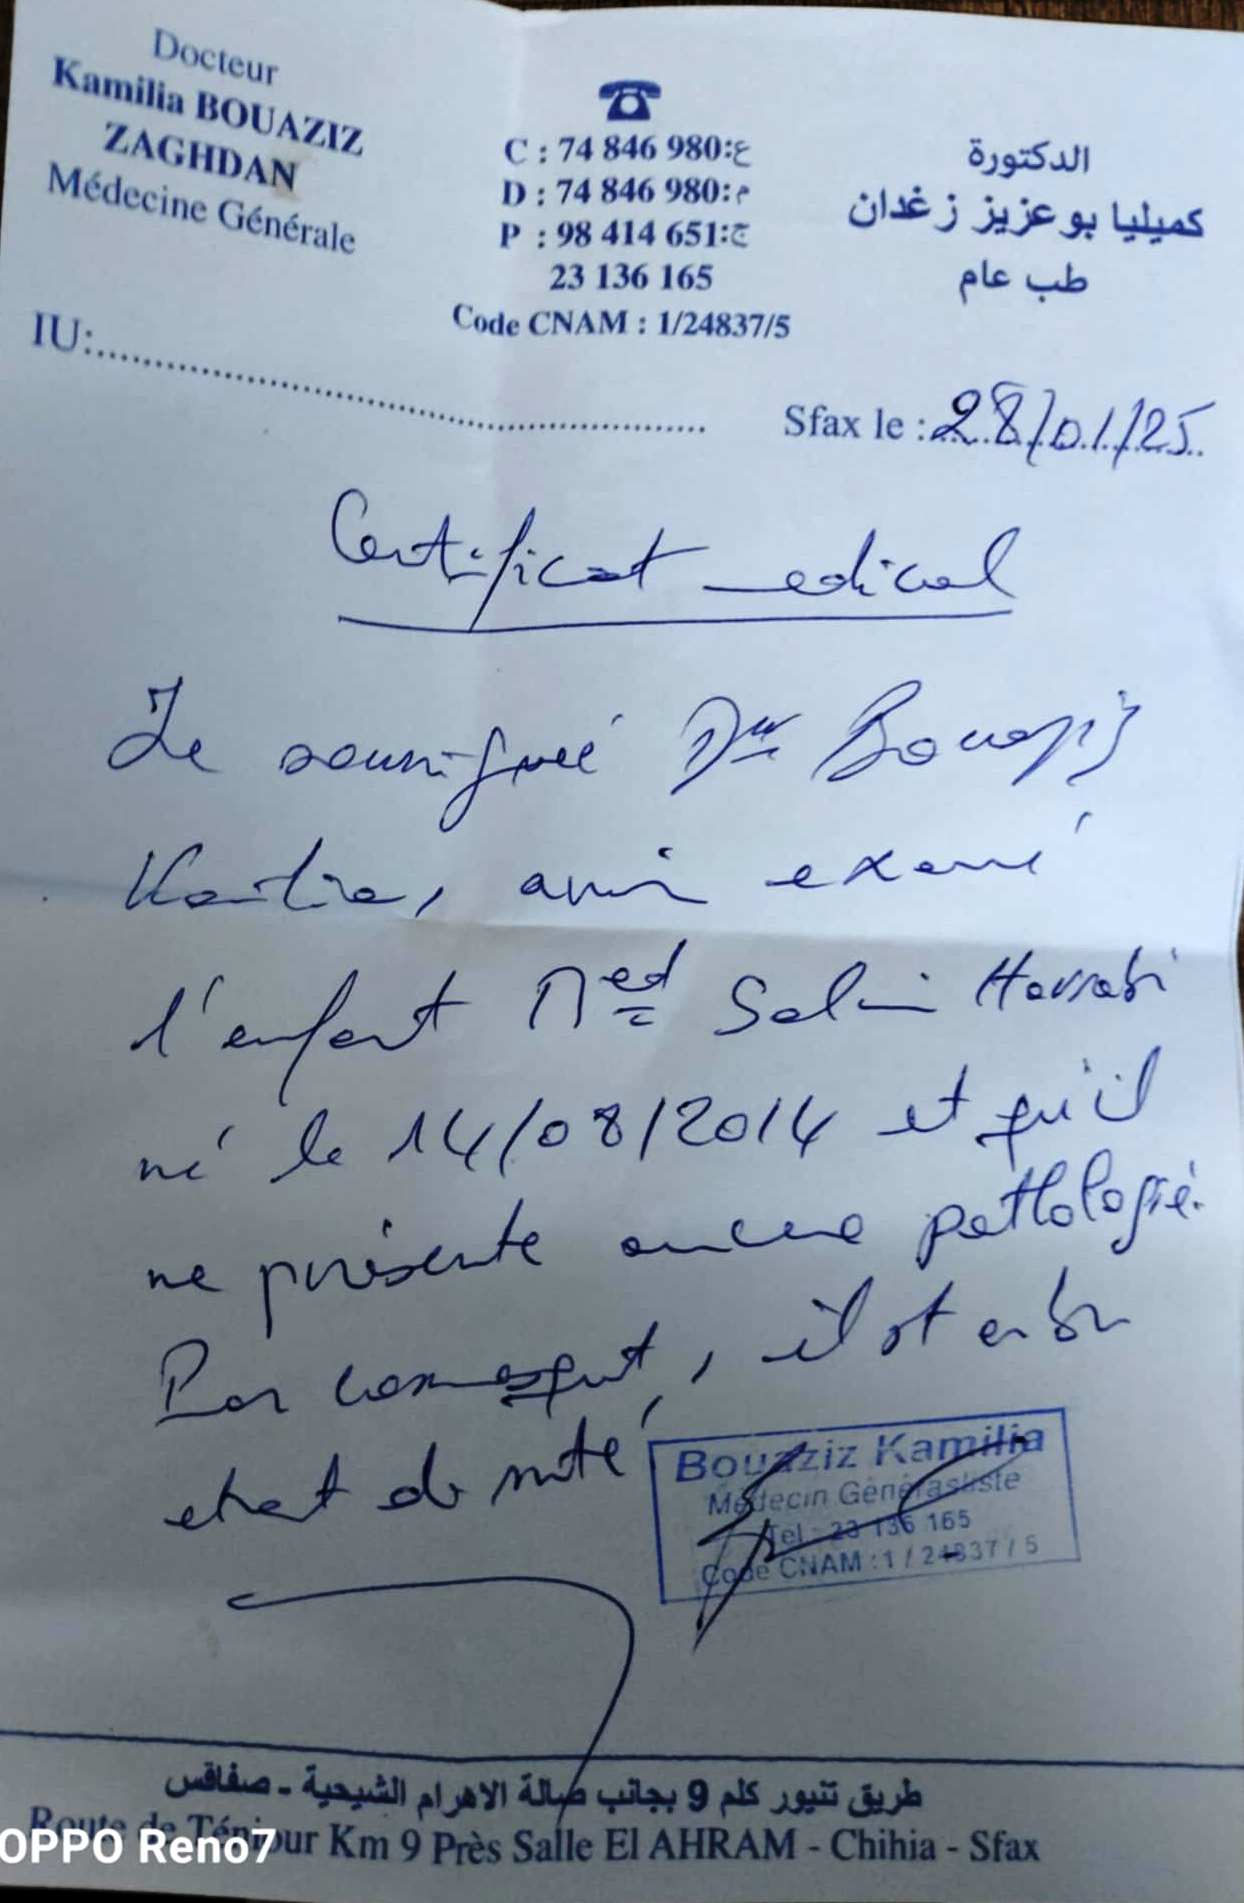 Docteur
Kamilia BOUAZIZ
ZAGHDAN
Médecine Générale
C : 74 846 980:ع
D : 74 846 980:م
P : 98 414 651:ج
23 136 165
Code CNAM : 1/24837/5
الدكتورة
كميليا بوعزيز زغدان
طب عام
IU:
Sfax le : 28/01/25
Certificat medical
Je soussignée Dr Bouaziz
Kamilia, avoir examiné
l'enfant Med Salim
né le 14/08/2014 et qu'il
ne présente aucune pathologie.
Par conséquent, il est en bon
etat de santé
Bouaziz Kamilia
Médecin Généraliste
Tel : 23 136 165
Code CNAM : 1 / 24837 / 5
طريق تنيور كلم 9 بجانب صالة الاهرام الشيحية - صفاقس
Route de Téniour Km 9 Près Salle El AHRAM - Chihia - Sfax
OPPO Reno7